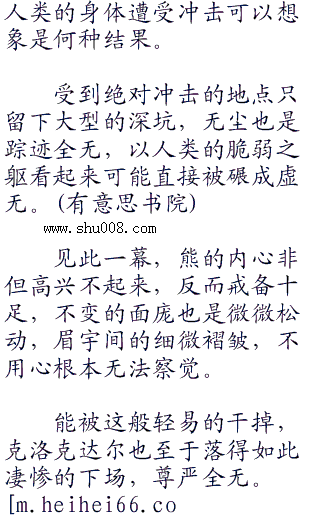 人类的身体遭受冲击可以想
象是何种结果。
受到绝对冲击的地点只
留下大型的深坑，无尘也是
踪迹全无，以人类的脆弱之
躯看起来可能直接被碾成虚
无。(有意思书院)
www.shu008.com
见此一幕，熊的内心非
但高兴不起来，反而戒备十
足，不变的面庞也是微微松
动，眉宇间的细微褶皱，不
用心根本无法察觉。
能被这般轻易的干掉，
克洛克达尔也至于落得如此
凄惨的下场，尊严全无。
[m.heihei66.co